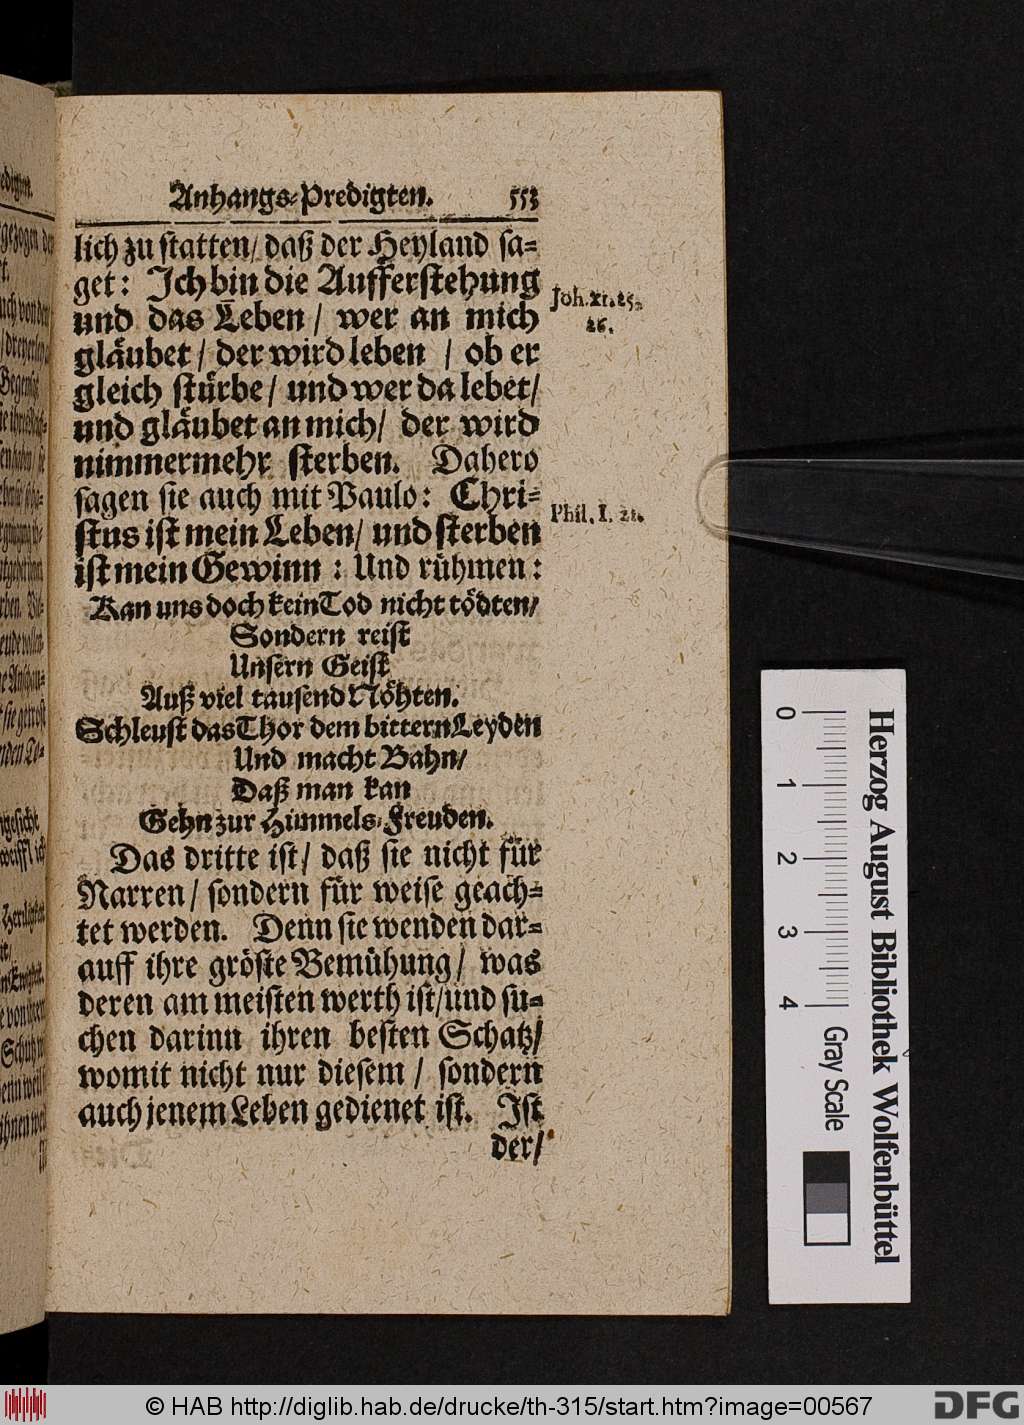 Anhangs-Predigten. 553
lich zu statten/ daß der Heyland sa-
get: Ich bin die Aufferstehung
und das Leben / wer an mich
gläubet / der wird leben / ob er
gleich stürbe / und wer da lebet/
und gläubet an mich/ der wird
nimmermehr sterben. Dahero
sagen sie auch mit Paulo: Chri-
stus ist mein Leben/ und sterben
ist mein Gewinn : Und rühmen:
Kan uns doch kein Tod nicht tödten/
Sondern reist
Unsern Geist
Auß viel tausend Nöhten.
Schleust das Thor dem bittern Leyden
Und macht Bahn/
Daß man kan
Gehn zur Himmels-Freuden.
Das dritte ist/ daß sie nicht für
Narren/ sondern für weise geach-
tet werden. Denn sie wenden dar-
auff ihre gröste Bemühung/ was
deren am meisten werth ist/und su-
chen darinn ihren besten Schatz/
womit nicht nur diesem / sondern
auch jenem Leben gedienet ist. Ist
der/
Joh. XI. 25.
26.
Phil. I. 21.
0 1 2 3 4
Gray Scale
Herzog August Bibliothek Wolfenbüttel
© HAB http://diglib.hab.de/drucke/th-315/start.htm?image=00567
DFG